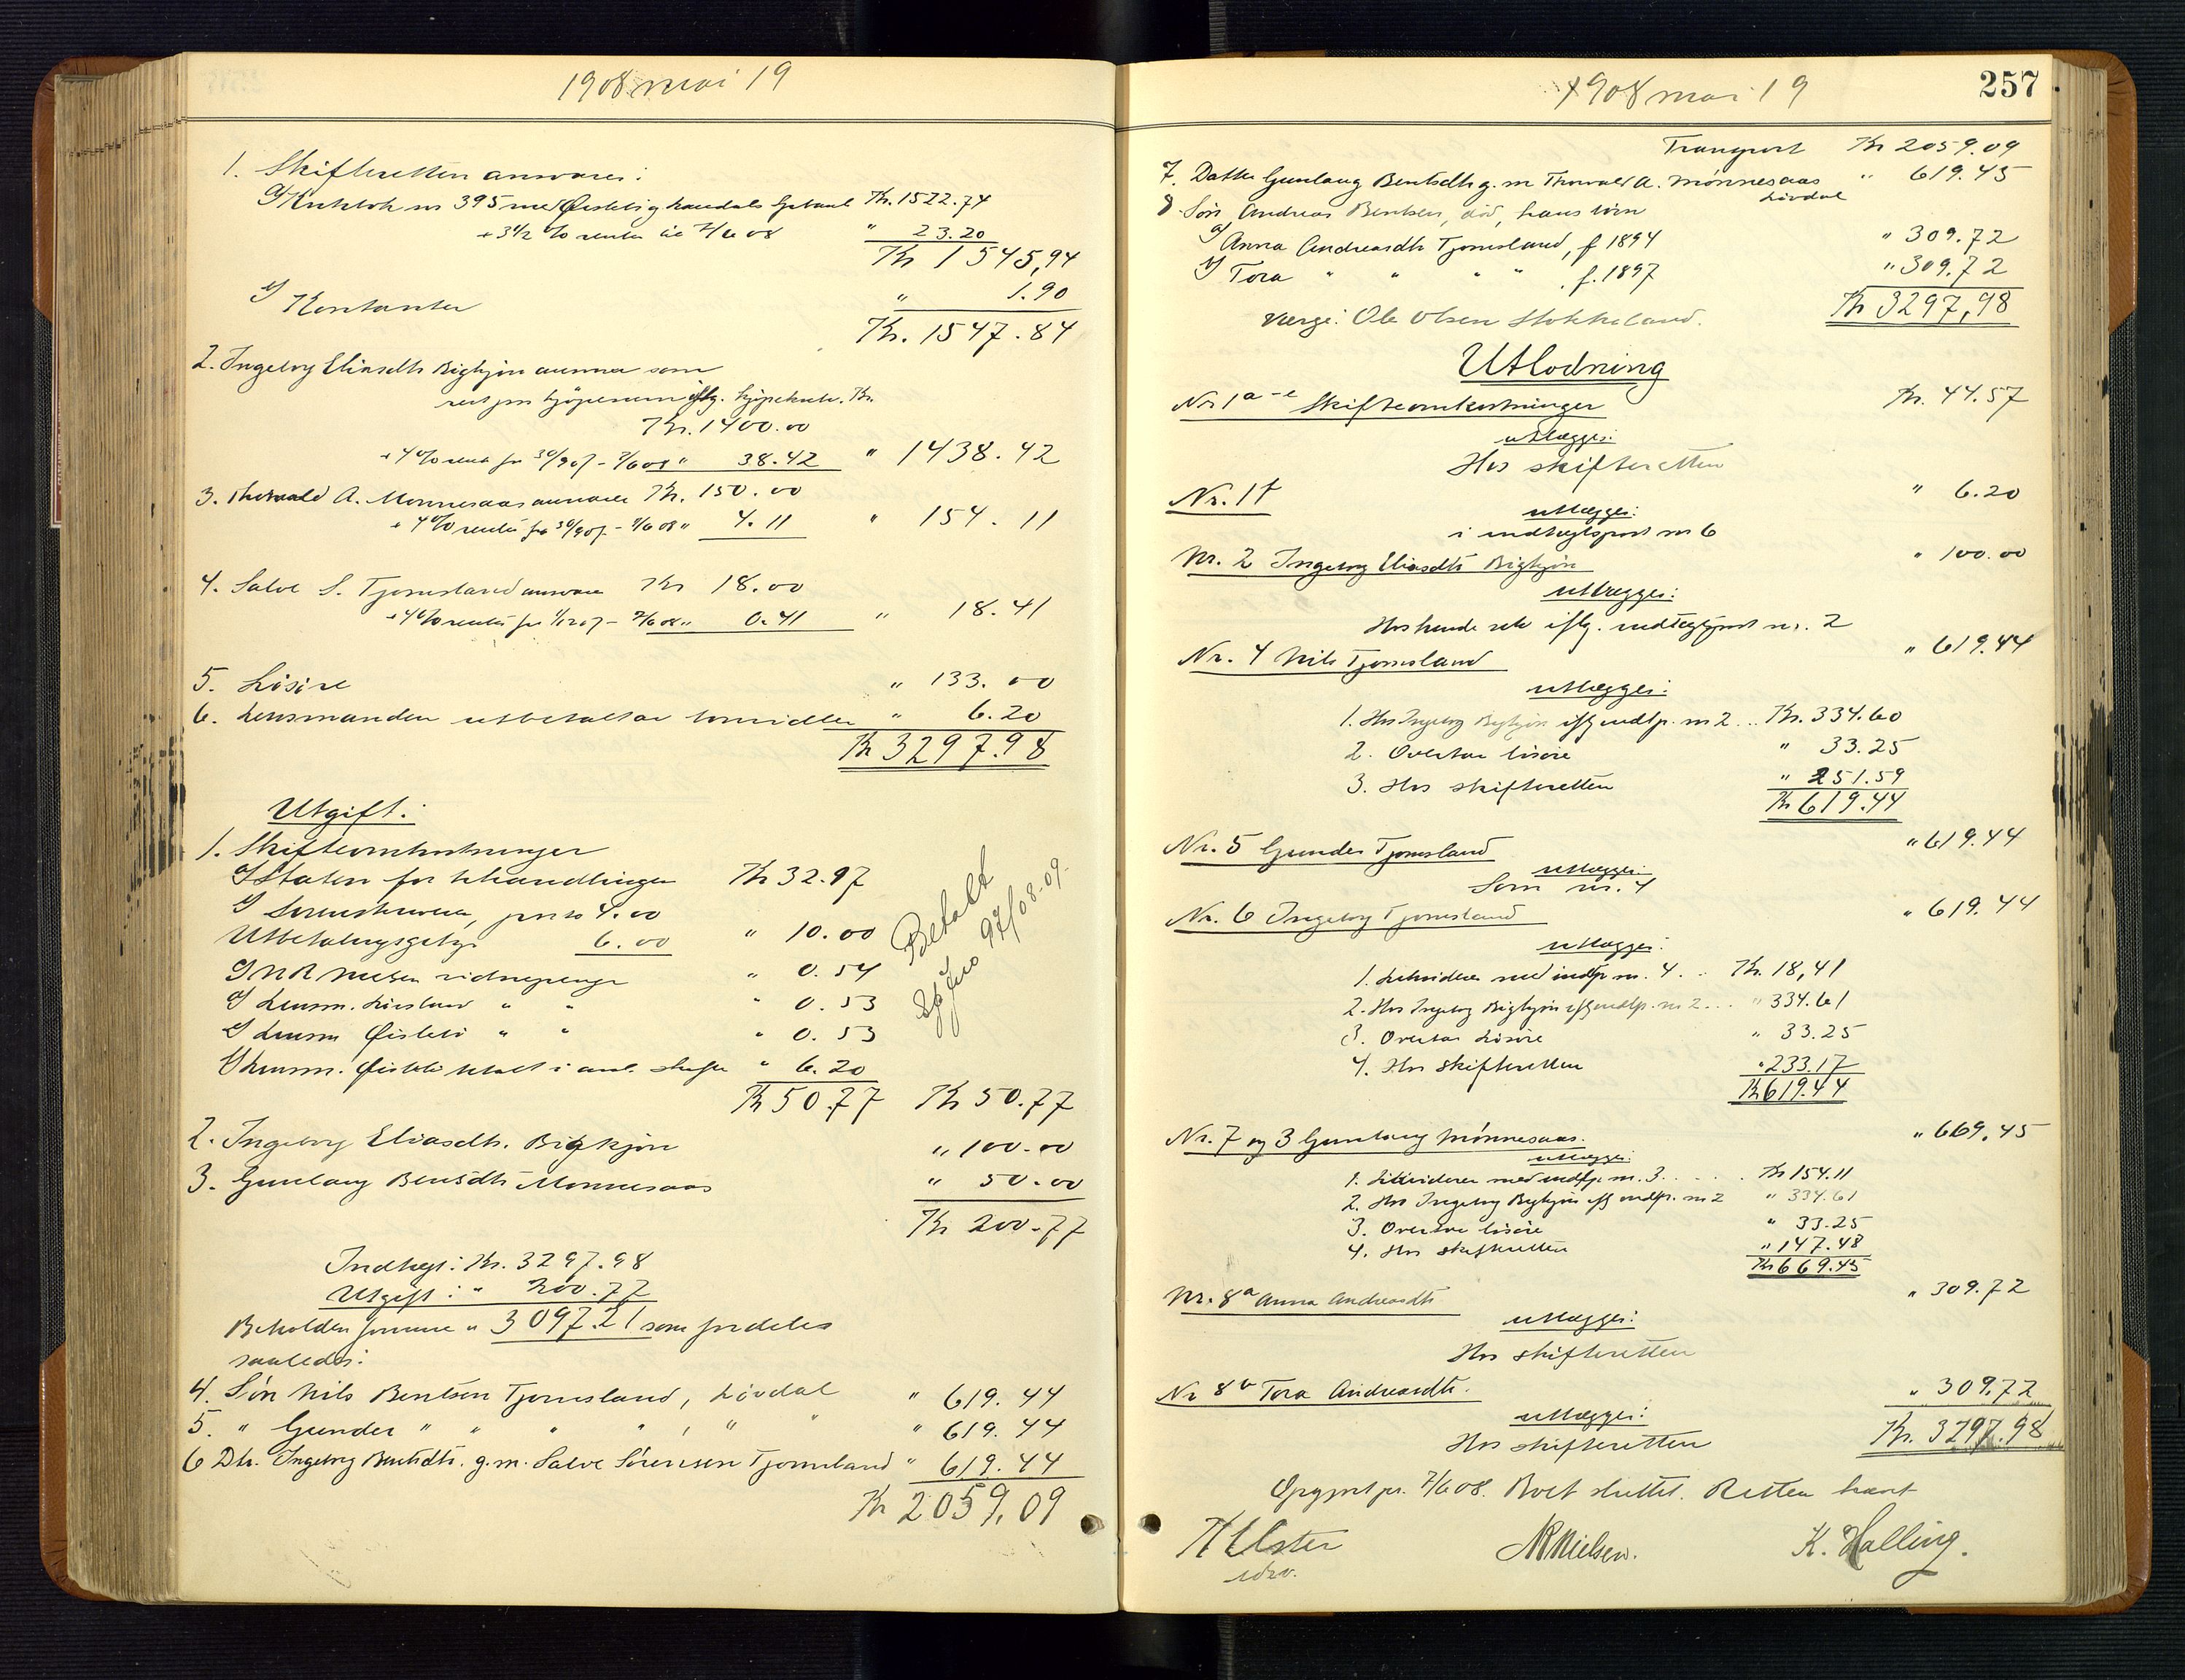 1908 mai 19
1. Skifteretten ansvarer:
a) Kontobok nr 395 med Øislebø g Laudals Spbank Kr. 1522.74
+ 3 1/2 % renter til 7/6 08 " 23.20
Kr 1545,94
b) Kontanter " 1.90
Kr. 1547.84
2. Ingeborg Eliasdtr Bigkjøn ansvarer som
rest paa kjøpesum iflg. kjøpekontr. Kr.
Kr. 1400.00
+ 4% rente fra 30/9 07 - 7/6 08 " 38.42 " 1438.42
3. Thorvald A. Monnesaas ansvarer Kr. 150.00
+ 4% rente fra 30/9 07 - 7/6 08 " 4.11 " 154.11
4. Salve S. Tjomsland ansvarer Kr 18.00
+ 4% rente fra 1/12 07 - 7/6 08 " 0.41 " 18.41
5. Løsøre " 133.00
6. Lensmanden utbetalt av bomidler " 6.20
Kr 3297.98
Utgift:
1. Skifteomkostninger
a) Staten for behandlingen Kr 32.97
b) Sorenskriveren, porto 4.00
Utbetalingsgebyr 6.00 " 10.00
c) N R Nielsen vidnepenge " 0.54
d) Lensm. " " " 0.53
e) Lensm Øislebø " " " 0.53
f) Lensm. Øislebø betalt i anl. skifte " 6.20
Kr 50.77 Kr 50.77
Betalt
2. Ingeborg Eliasdtr. Bigkjøn " 100.00
3. Gunlaug Bentsdtr Monnesaas " 50.00
Kr 200.77
Indtegt: Kr. 3297.98
Utgift: " 200.77
Beholden formue " 3097.21 som fordeles
saaledes:
4. Søn Nils Bentsen Tjomsland, Løvdal " 619.44
5. " Gunder " " " , " " " 619.44
6 Dtr. Ingeborg Bentsdtr. g.m. Salve Sørensen Tjomsland " 619.44
Kr 2059,09
1908 mai 19
257
Transport Kr 2059.09
7. Datter Gunlaug Bentsdtr g. m Thorvald A. Mønnesaas " 619.45
Løvdal
8. Søn Andreas Bentsen, død, hans børn
a) Anna Andreasdtr Tjomsland, f. 1894 " 309.72
b) Tora " " " " , f. 1897 " 309.72
Kr 3297,98
Verge: Ole Olsen Stokkeland.
Utlodning
Nr 1 a-e Skifteomkostninger Kr. 44.57
utlægges:
Hos skifteretten
Nr. 1 f " 6.20
utlægges:
i indtægtspost nr 6
Nr. 2 Ingeborg Eliasdtr Bigkjøn " 100.00
utlægges:
Hos hende selv iflg. indtægtspost nr. 2
Nr. 4 Nils Tjomsland " 619.44
utlægges:
1. Hos Ingeborg Bigkjøn iflg indtp. nr 2 .. Kr. 334.60
2. Overtar løsøre " 33.25
3. Hos skifteretten " 251.59
Kr 619.44
Nr. 5 Gunder Tjomsland " 619.44
utlægges:
Som nr. 4
Nr. 6 Ingeborg Tjomsland " 619.44
utlægges:
1. Likviderer med indtp nr. 4. .. Kr. 18,41
2. Hos Ingeborg Bigkjøn iflg indtp. nr 2 ... " 334.61
3. Overtar løsøre " 33.25
4. Hos skifteretten " 233.17
Kr 619.44
Nr. 7 og 3 Gunlaug Mønnesaas. " 669.45
utlægges:
1. Likviderer med indtp. nr. 3. . . . . Kr 154.11
2. Hos Ingeborg Bigkjøn iflg indtp. nr 2 " 334.61
3. Overtar løsøre " 33.25
4. Hos skifteretten " 147.48
Kr 669.45
Nr. 8 a Anna Andreasdtr " 309.72
utlægges:
Hos skifteretten
Nr 8 b Tora Andreasdtr. " 309.72
utlægges:
Hos skifteretten Kr. 3297.98
Opgjort pr. 7/6 08. Boet sluttet. Retten hævet
N R Nielsen. K. Halling.